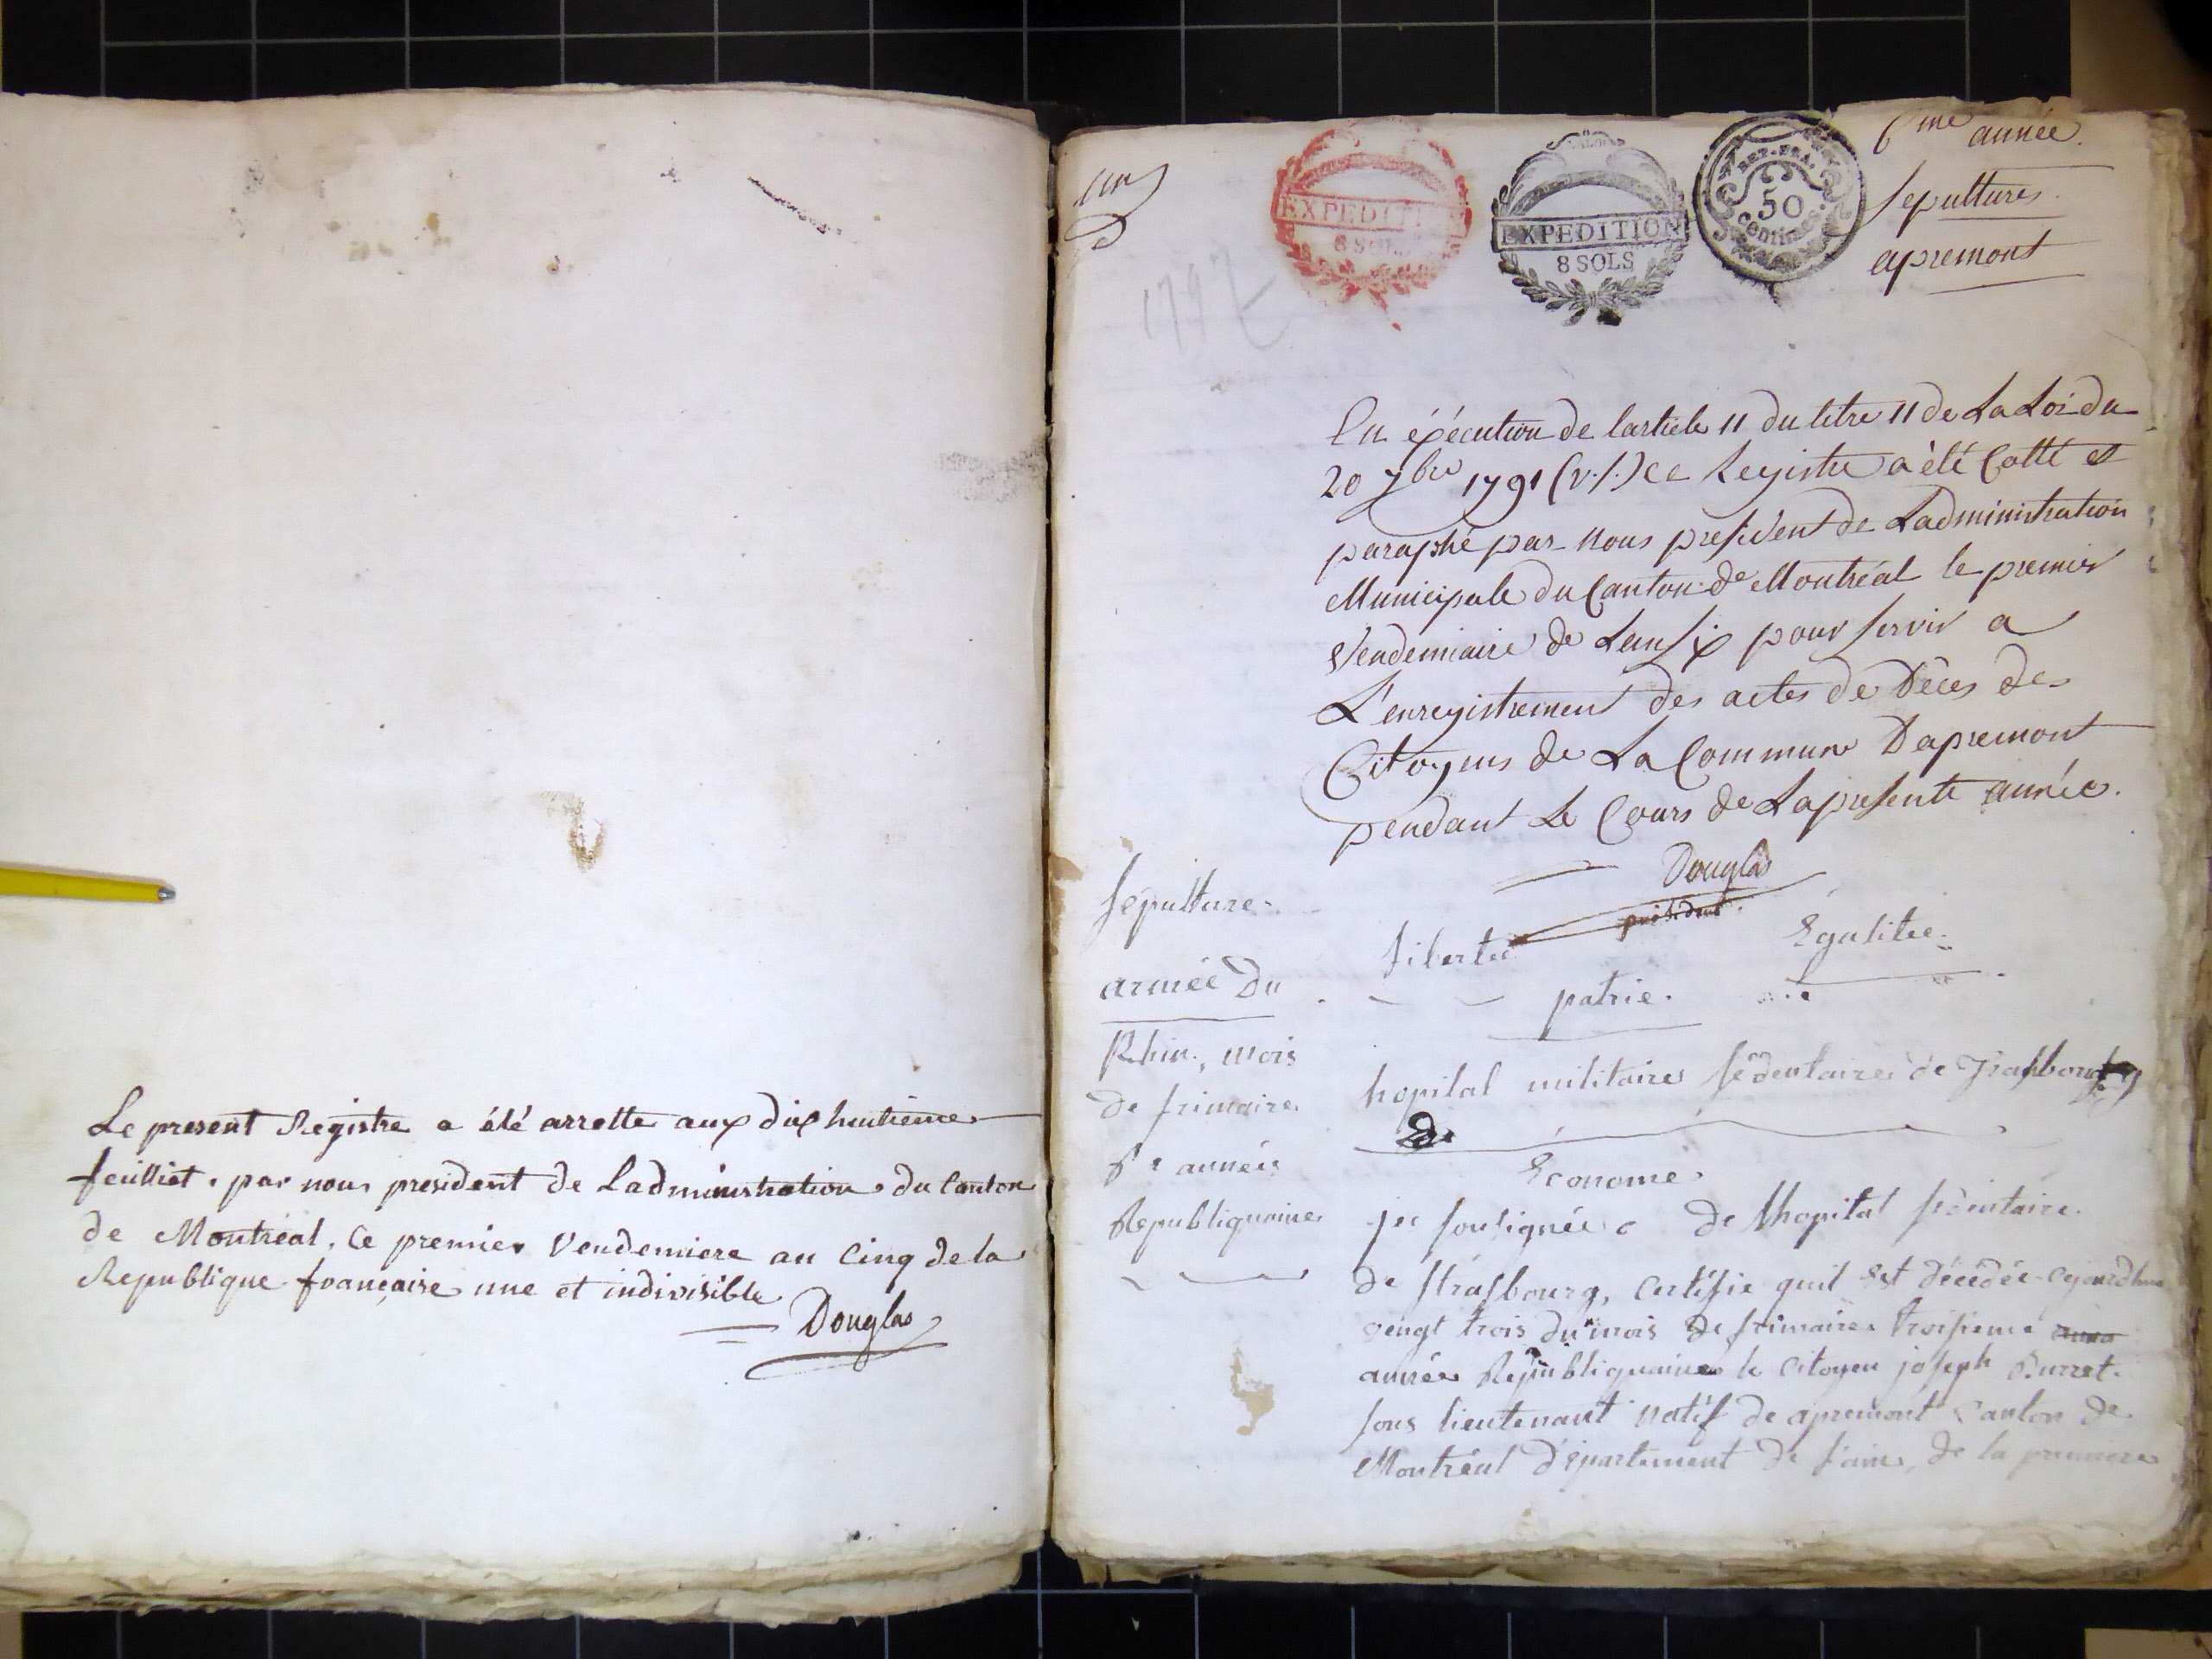 Le present Registre a été arrette aux dix huitieme
feuillet. par nous president de Ladministration du Canton
de Montreal, Ce premier Vendemiere an Cinq de la
Republique françaire une et indivisible
Douglas
un
D
EXPEDITION
8 SOLS
EXPEDITION
8 SOLS
REP. FRA.
50
Centimes.
6me année.
sepultures.
apremont
1797
En éxécution de larticle 11 du titre 11 de La Loi du
20 7bre 1791 (v.s.) ce Registre a été Cotté et
paraphé par nous president de Ladministration
Municipale du Canton de Montréal le premier
Vendemiaire de Lan six pour servir a
L'enregistrement des actes de Déces des
Citoyens de La Commune Dapremont
pendant Le Cours de Lapresente année.
Douglas
président.
sépulture.
armée Du
Rhin, mois
de frimaire
année
Republiquaine
libertée
Egalitee.
patrie.
hopital militaire sédentaire de Strasbourg
De
Econome
je soussignée de lhopital sédentaire
de strasbourg, Certifie quil est décédée cejourdhui
vengt trois du mois de frimaire troisieme
année Republiquaine le Citoyen joseph Burret.
sous lieutenant natif de apremont Canton de
Montréal département de l'ain, de la premiere